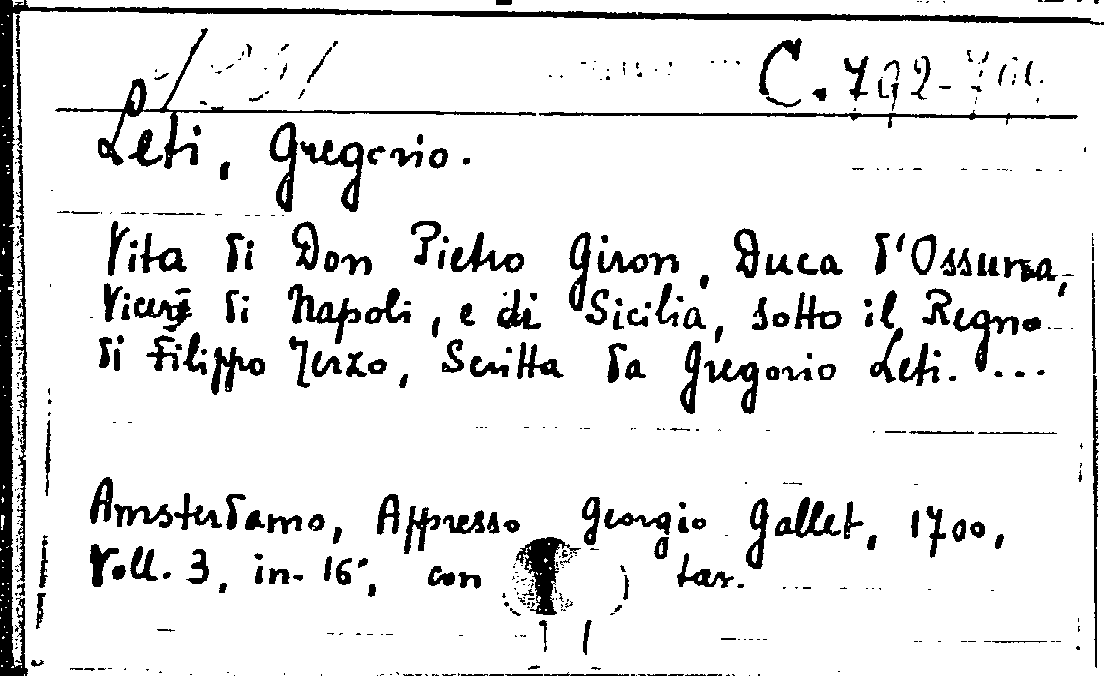 C. 792-794
Leti, Gregorio.
Vita di Don Pietro Giron, Duca d'Ossuna,
Vicerè di Napoli, e di Sicilia, sotto il Regno
di Filippo Terzo, Scritta da Gregorio Leti. ...
Amsterdamo, Appresso Georgio Gallet, 1700,
Voll. 3, in-16°, con tav.